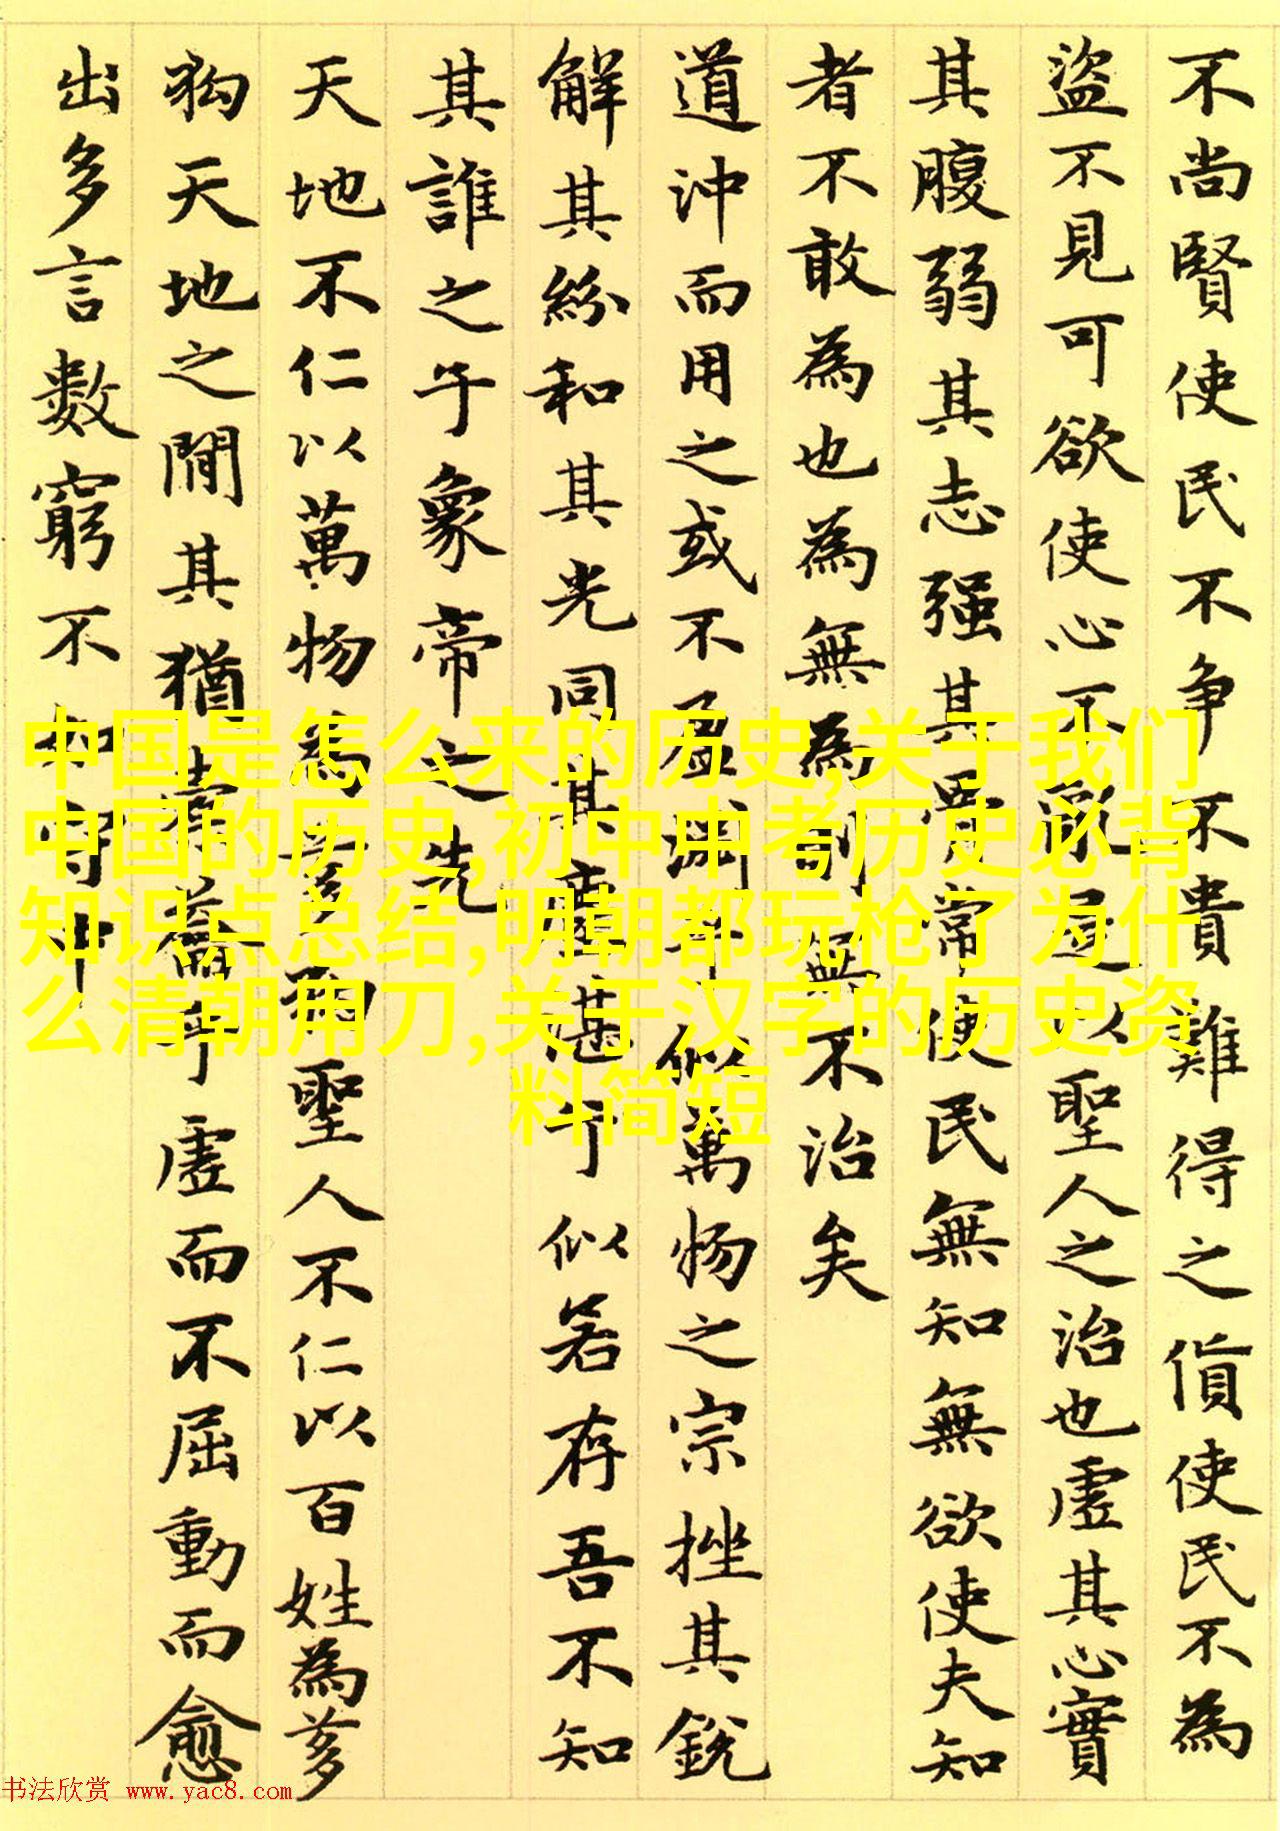 不尚賢使民不争不貴難得之貨使民不為
盜不見可欲使心不亂是以聖人之治也虛其心實
其腹弱其志强其骨常使民無知無欲使夫知
者不敢為也為無為則無不治矣
道沖而用之或不盈淵乎似萬物之宗挫其銳
解其紛和其光同其塵湛兮似若存吾不知
其誰之子象帝之先
天地不仁以萬物為芻狗聖人不仁以百姓為芻
狗天地之間其猶橐籥乎虛而不屈動而愈
出多言數窮不如守中
中国是怎么来的历史,关于我们
中国的历史,初中中考历史必背
知识点总结,明朝都玩枪了为什
么清朝用刀,关于汉字的历史资
料简短
书法欣赏 www.yac8.com